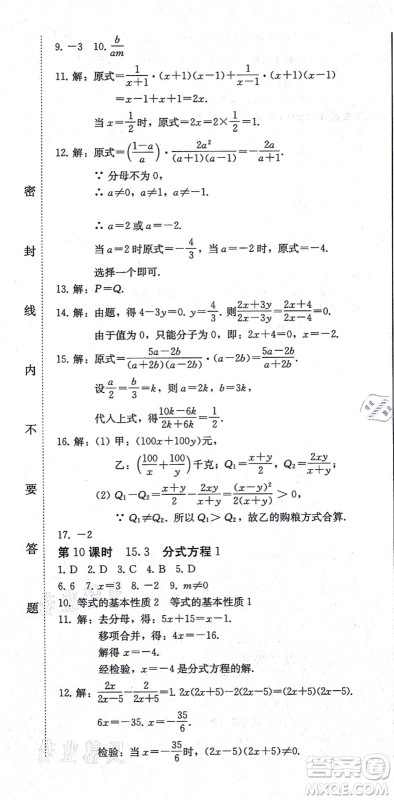 9. －3　10. b/am
11. 解：原式＝1/(x＋1)·(x＋1)(x－1)＋1/(x－1)·(x＋1)(x－1)
＝x－1＋x＋1＝2x.
当 x＝1/2时，原式＝2x＝2×1/2＝1.
12. 解：原式＝((1－a)/a)·2a²/((a＋1)(a－1))＝－2a/(a＋1).
∵ 分母不为 0，
∴ a≠0，a≠1，a≠－1.
∴ a＝2 或 a＝－2.
当 a＝2 时原式＝－4/3，当 a＝－2 时，原式＝－4.
选择一个即可.
13. 解：P＝Q.
14. 解：由题，得 4－3y＝0. y＝4/3. 则(2x＋3y)/(2x－3y)＝(2x＋4)/(2x－4).
由于值为 0，只能分子为 0；即 2x＋4＝0，x＝－2.
15. 解：原式＝(5a－2b)/((a＋2b)(a－2b))·(a－2b)＝(5a－2b)/(a＋2b).
设a/2＝b/3＝k，则 a＝2k，b＝3k，
代入上式，得(10k－6k)/(2k＋6k)＝4k/8k＝1/2.
16. 解：(1) 甲：(100x＋100y)元，
乙：(100/x＋100/y)千克；Q₁＝(x＋y)/2，Q₂＝2xy/(x＋y).
(2) Q₁－Q₂＝(x＋y)/2－2xy/(x＋y)＝(x－y)²/(2(x＋y))＞0，
∵ Q₁＞Q₂，所以，故乙的购粮方式合算.
17. －2
第 10 课时　15.3　分式方程 1
1. D　2. D　3. C　4. B　5. D
6. 6　7. x＝3　8. －2　9. m≠0
10. 等式的基本性质 2　等式的基本性质 1
11. 解：去分母，得：5x＋15＝x－1.
移项合并，得：4x＝－16.
解得 x＝－4.
经检验，x＝－4 是分式方程的解.
12. 解：2x/(2x－5)－2/(2x＋5)＝1. 2x(2x＋5)－2(2x－5)＝(2x－5)(2x＋5).
6x＝－35. x＝－35/6.
检验：当 x＝－35/6时，(2x－5)(2x＋5)≠0.
密封线内不要答题